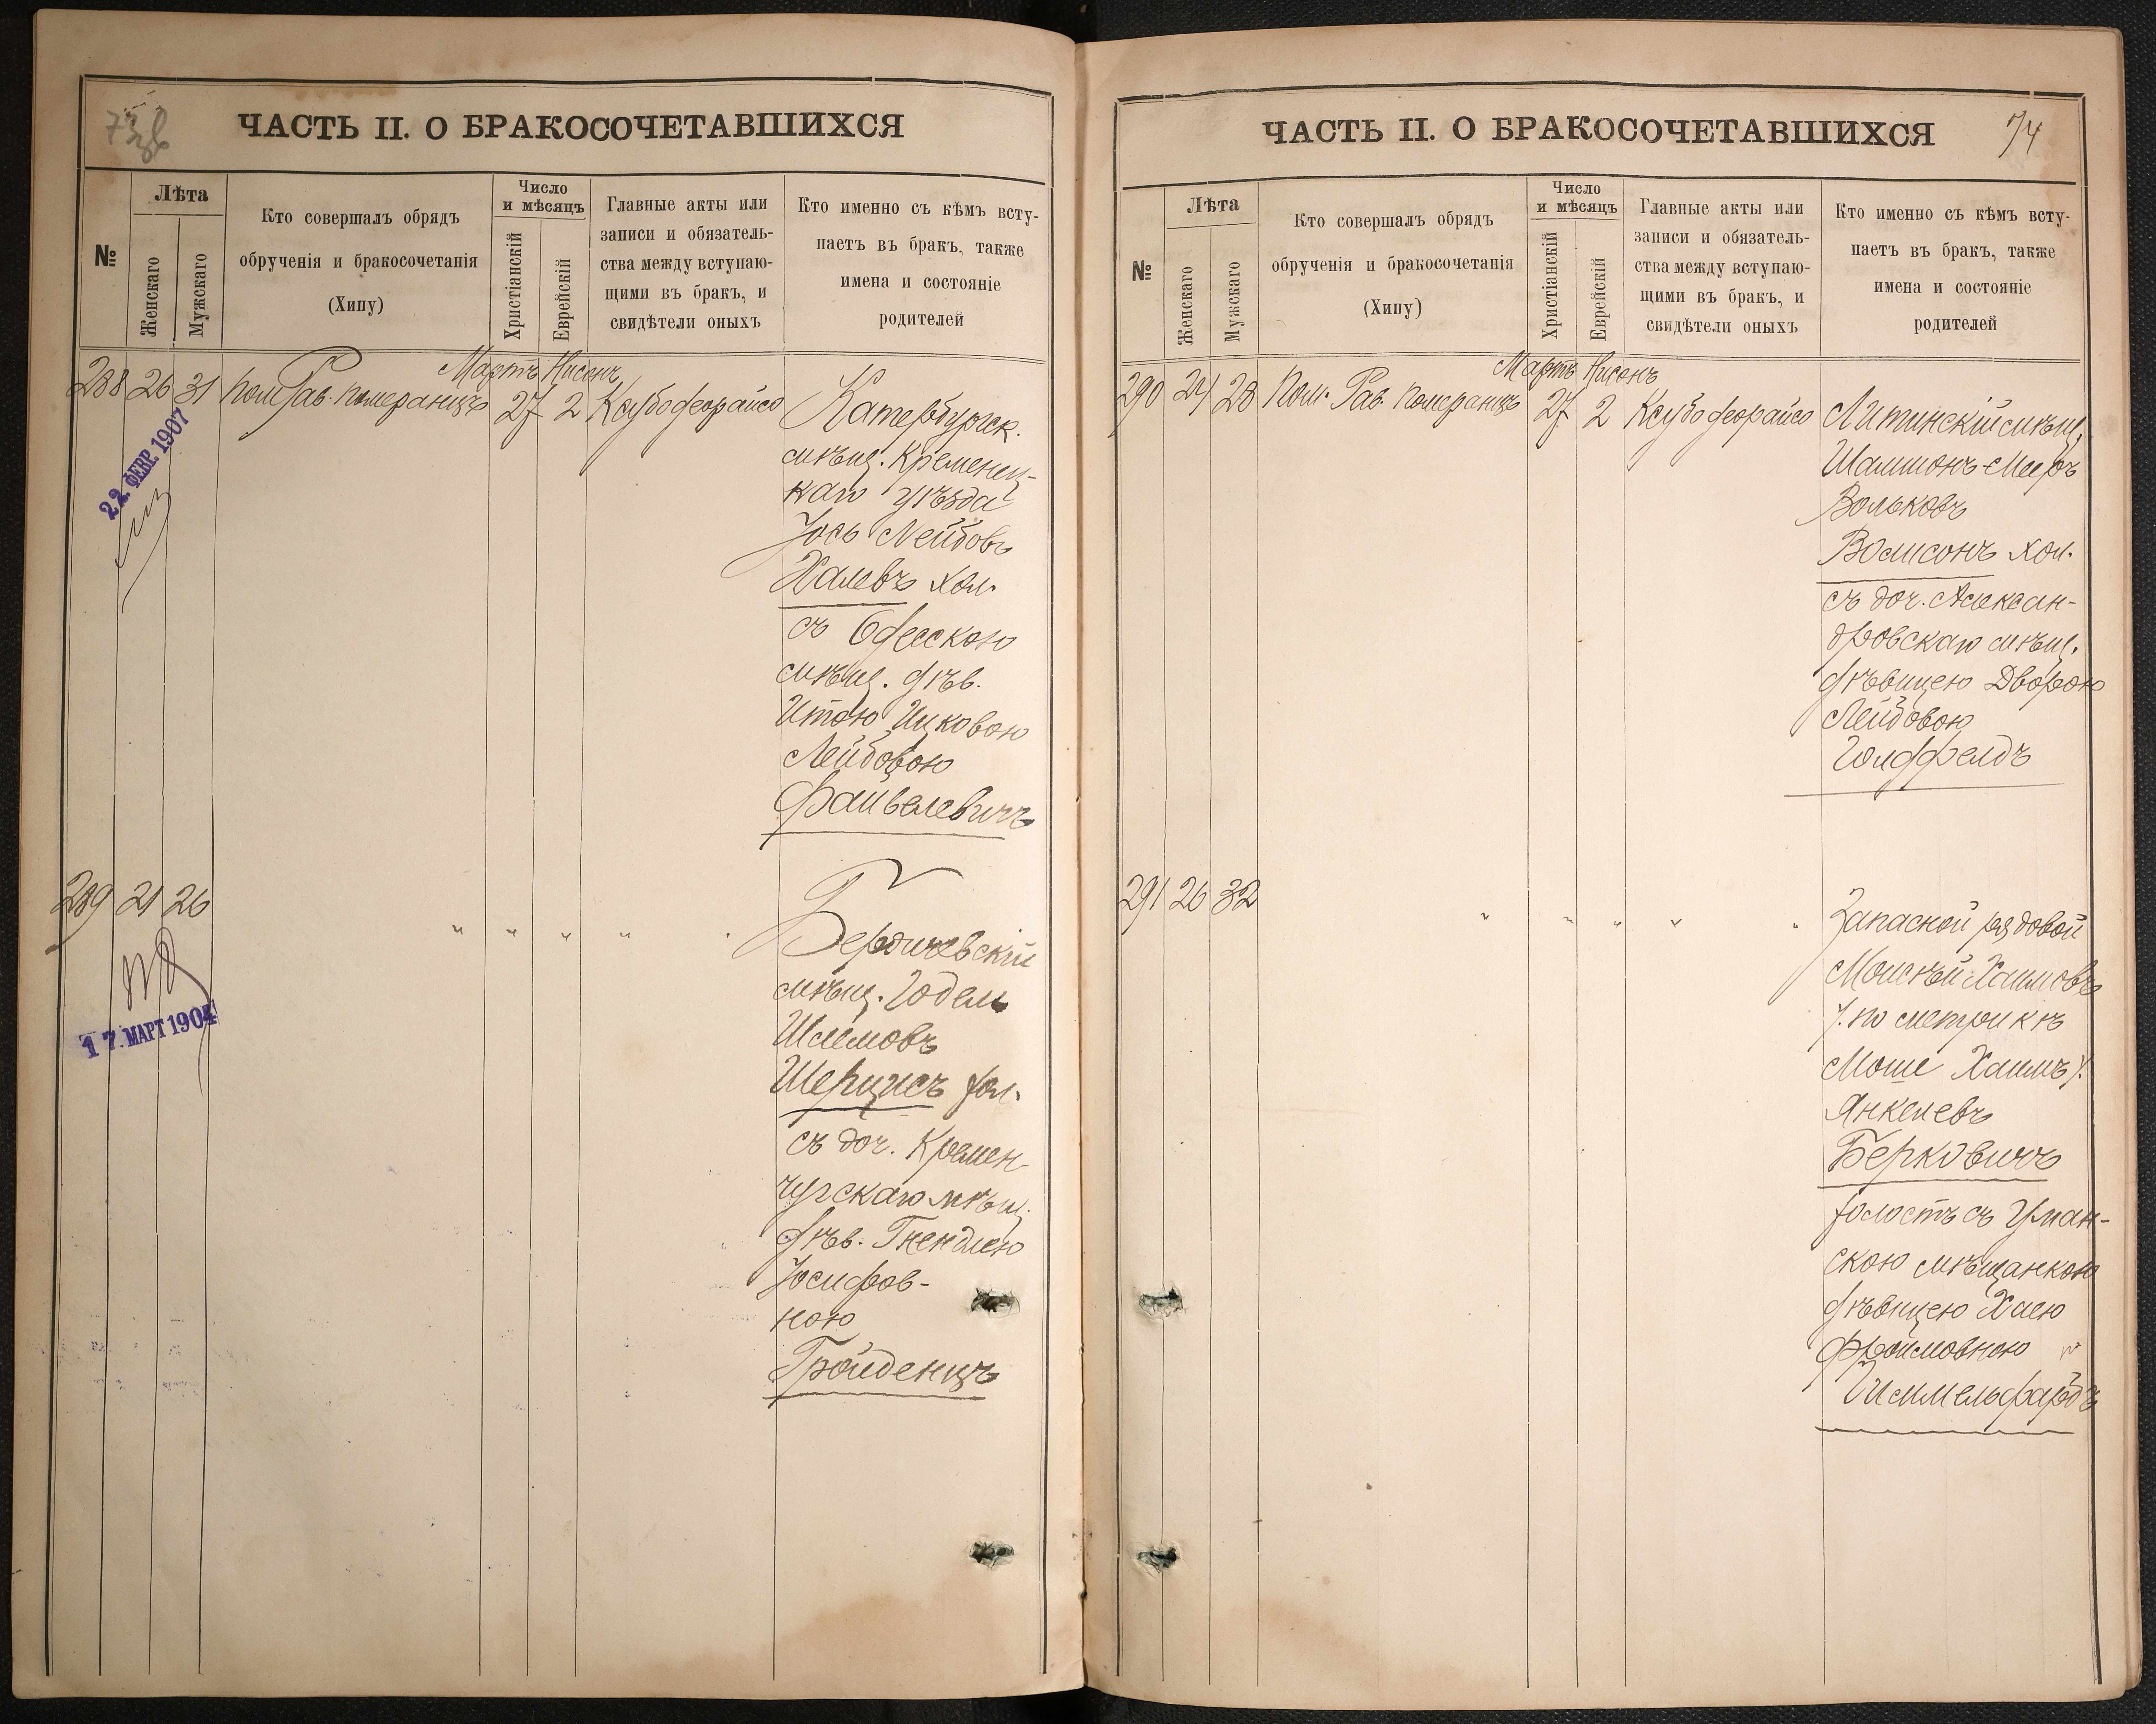 ЧАСТЬ II. О БРАКОСОЧЕТАВШИХСЯ
№
Лѣта
Женскаго
Мужскаго
Кто совершалъ обрядъ
обрученія и бракосочетанія
(Хипу)
Число
и мѣсяцъ
Христіанскій
Еврейскій
Главные акты или
записи и обязатель-
ства между вступаю-
щими въ бракъ, и
свидѣтели оныхъ
Кто именно съ кѣмъ всту-
паетъ въ бракъ, также
имена и состояніе
родителей
Мартъ Нисонъ
288 26 31 Пом. Рав. Померанцъ 27 2 Ксубо деорайсо
Катербургск.
мѣщ. Кременец-
каго уѣзда
Іось Лейбовъ
Халевъ хол.
съ Одесскою
мѣщ. дѣв.
Итою Ицковою
Лейбовою
Файвелевичъ
22. ФЕВР. 1907
289 21 26 " " " "
Бердичевскій
мѣщ. Годель
Шлемовъ
Шерцисъ хол.
съ доч. Кремен-
чугскаго мѣщ.
дѣв. Гнендлею
Іосифов-
ною
Гройденцъ
17. МАРТ 1904
ЧАСТЬ II. О БРАКОСОЧЕТАВШИХСЯ
74
№
Лѣта
Женскаго
Мужскаго
Кто совершалъ обрядъ
обрученія и бракосочетанія
(Хипу)
Число
и мѣсяцъ
Христіанскій
Еврейскій
Главные акты или
записи и обязатель-
ства между вступаю-
щими въ бракъ, и
свидѣтели оныхъ
Кто именно съ кѣмъ всту-
паетъ въ бракъ, также
имена и состояніе
родителей
Мартъ Нисонъ
290 24 28 Пом. Рав. Померанцъ 27 2 Ксубо деорайсо
Литинскій мѣщ.
Шамшонъ-Мееръ
Вольковъ
Волисонъ хол.
съ доч. Алексан-
дровскаго мѣщ.
дѣвицею Дворою
Лейбовою
Голдфелдъ
291 26 32 " " " "
Запасной рядовой
Моисѣй Хаимовъ
/. по метрикѣ
Моше Хаимъ /.
Янкелевъ
Берковичъ
холостъ съ Уман-
скою мѣщанкою
дѣвицею Хаею
Фроимовною
Гиммельфарбъ